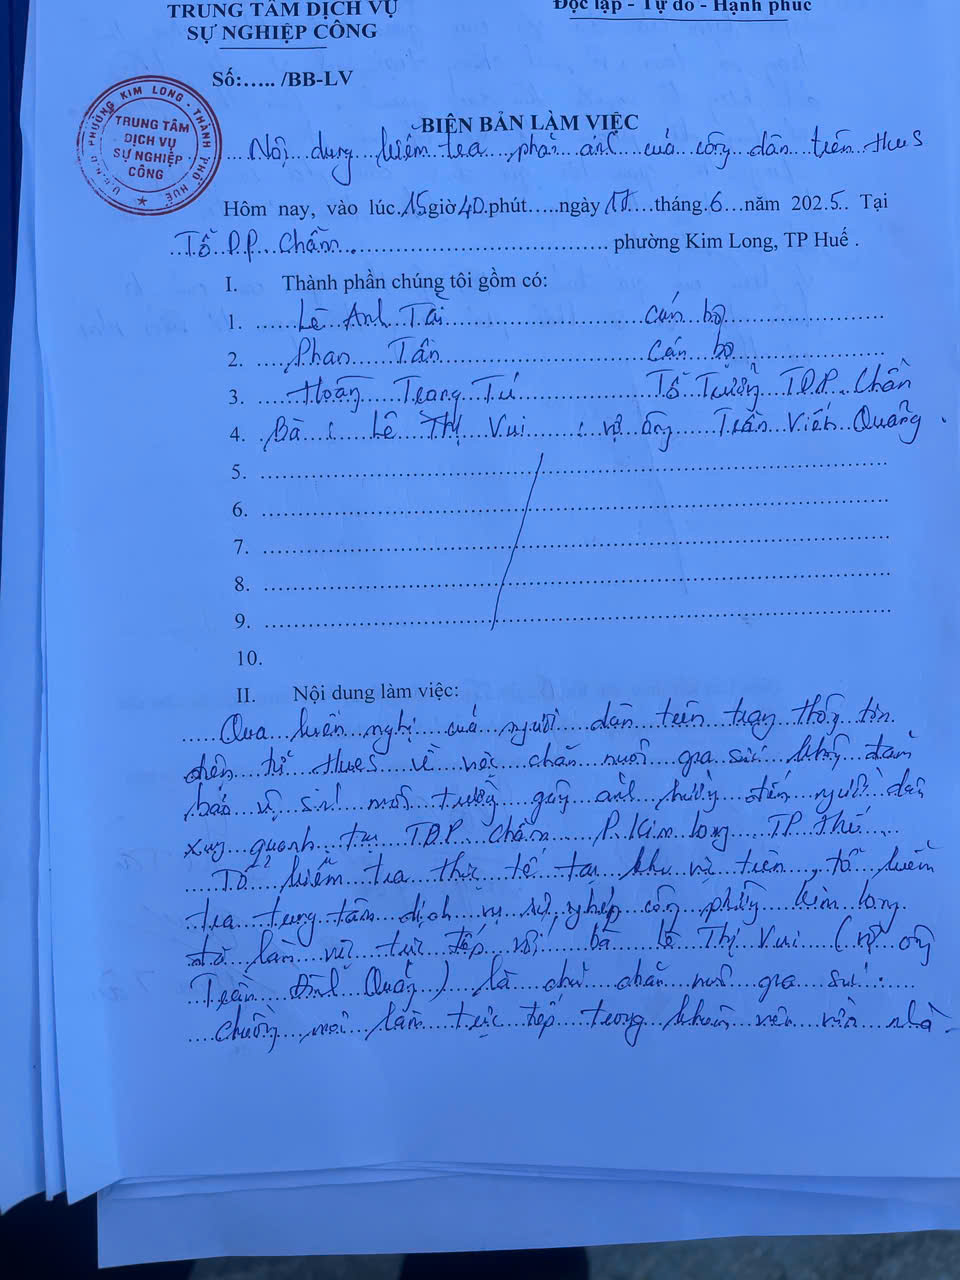 TRUNG TÂM DỊCH VỤ
SỰ NGHIỆP CÔNG
Độc lập - Tự do - Hạnh phúc
Số:..... /BB-LV
U.B.N.D PHƯỜNG KIM LONG - THÀNH PHỐ HUẾ
TRUNG TÂM
DỊCH VỤ
SỰ NGHIỆP
CÔNG
BIÊN BẢN LÀM VIỆC
Nội dung kiểm tra phản ánh của công dân trên Hues
Hôm nay, vào lúc 15 giờ 40 phút.....ngày 17 tháng 6 năm 2025.. Tại
Tổ D.P Chầm phường Kim Long, TP Huế .
I. Thành phần chúng tôi gồm có:
1. Lê Anh Tài cán bộ
2. Phan Tân Cán bộ
3. Hoàng Trọng Tú Tổ Trưởng TDP Chầm
4. Bà : Lê Thị Vui : vợ ông Trần Viết Quảng.
5.
6.
7.
8.
9.
10.
II. Nội dung làm việc:
Qua kiến nghị của người dân trên trang thông tin
điện tử Hues về việc chăn nuôi gia súc không đảm
bảo vệ sinh môi trường gây ảnh hưởng đến người dân
xung quanh tại TDP Chầm P. Kim Long TP Huế
Tổ kiểm tra thực tế tại khu vực trên, tổ kiểm
tra trung tâm dịch vụ sự nghiệp công phường Kim Long
đã làm việc trực tiếp với bà Lê Thị Vui (vợ ông
Trần Đình Quảng) là chủ chăn nuôi gia súc.
chuồng nuôi làm trực tiếp trong khuôn viên vườn nhà